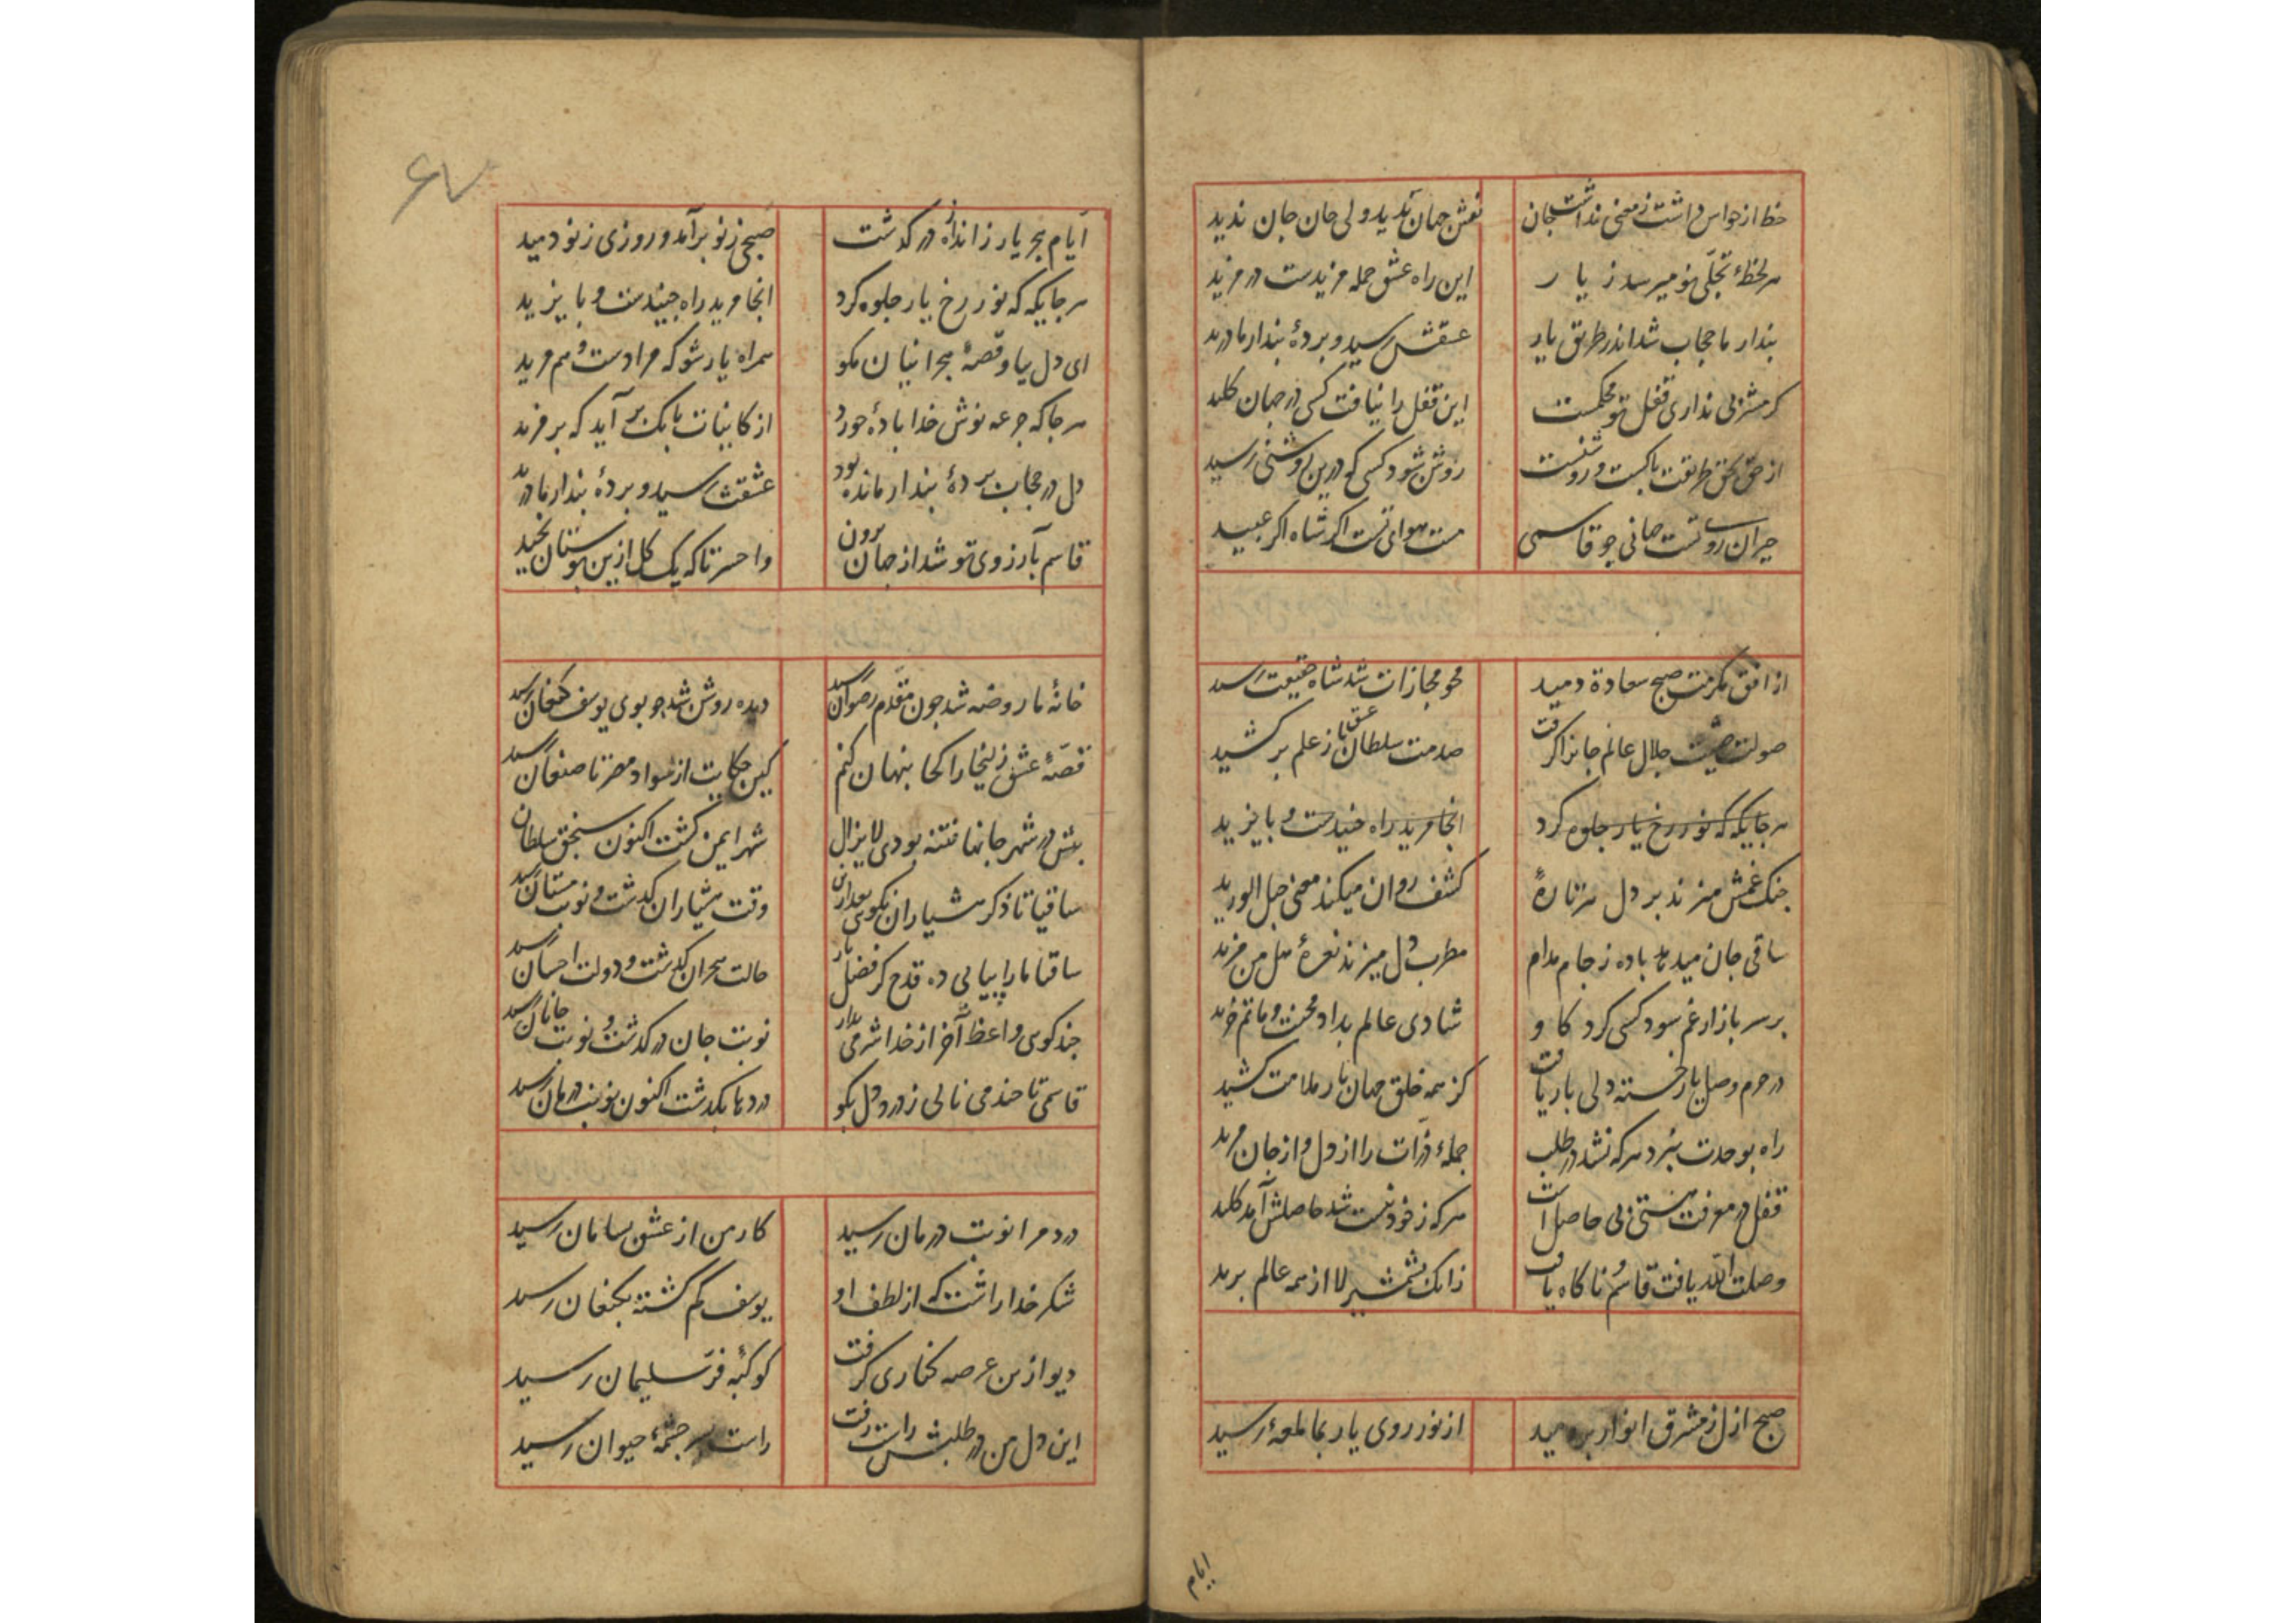 حظ از حواس داشت ز معنی نداشت جان نقش جهان بدید ولی جان جان ندید
هر لحظهٔ تجلّی نو میرسد ز یار این راه عشق جمله مزیدست در مزید
پندار ما حجاب شد اندر طریق یار عشقش رسید و پردهٔ پندار ما درید
کر مشربی نداری قفل تو محکمست این قفل را نیافت کسی در جهان کلید
از حق بحق طریقت پاکست و روشنست روشن شود کسی که درین روشنی رسید
حیران روی تست جهانی چو قاسمی مست هوای تست اکر شاه اکر عبید
از افق مکرمت صبح سعادة دمید محو مجازات شد شاه حقیقت رسید
صولت صیت جلال عالم جانرا کرفت صدمت سلطان عشق باز علم بر کشید
هر جایکه که نور رخ یار جلوه کرد انجا مرید راه جنیدست و بایزید
چنک غمش میزند بر دل هر تارهٔ کشف روان میکند معنی حبل الورید
ساقی جان میدهد باده ز جام مدام مطرب دل میزند نعرهٔ هل من مزید
بر سر بازار غم سود کسی کرد کاو شادی عالم بداد محنت و ماتم خرید
در حرم وصل یار خسته دلی بار یافت کز همه خلق جهان بار ملامت کشید
راه بوحدت نبرد هر که نشد در طلب جملهٔ ذرّات را از دل و از جان مرید
قفل در معرفت هستی بی حاصل است هر که ز خود نیست شد حاصلش آمد کلید
وصلت الله یافت قاسم ناکاه یافت زانک بشمشیر لا از همه عالم برید
صبح ازل ز مشرق انوار بردمید از نور روی یار بما لمعهٔ رسید
ایام
۶۷
ایّام هجر یار ز اندازه در کذشت صبحی ز نو برآمد و روزی ز نو دمید
هر جایکه که نور رخ یار جلوه کرد انجا مرید راه جنیدست و بایزید
ای دل بیا و قصهٔ هجرانیان مکو همراه یار شو که مرادست و هم مرید
هر جا که جرعه نوش خدا بادهٔ خورد از کاینات بانک بر آید که بر مزید
دل در حجاب پردهٔ پندار مانده بود عشقت رسید و پردهٔ پندار ما درید
قاسم بآرزوی تو شد از جهان برون وا حسرتا که یک کل ازین بوستان نچید
خانهٔ ما روضه شد چون مقدم رضوان رسید دیده روشن شد چو بوی یوسف کنعان رسید
قصّهٔ عشق زلیخا را کجا پنهان کنم کین حکایت از سواد مصر تا صنعان رسید
پیش در شهر جانها فتنه بودی لا یزال شهر ایمن کشت اکنون سنجق سلطان
ساقیا تا ذکر هشیاران نکویی بعد ازین وقت هشیاران کذشت و نوبت مستان رسید
ساقیا ما را پیاپی ده قدح کز فضل یار حالت هجران کذشت و دولت احسان رسید
چند کوی واعظ آخر از خدا شرمی بدار نوبت جان در کذشت و نوبت جانان رسید
قاسمی تا چند می نالی ز درد دل بکو دردها بکذشت اکنون نوبت درمان رسید
درد مرا نوبت درمان رسید کار من از عشق بسامان رسید
شکر خدا راست که از لطف او یوسف کم کشته بکنعان رسید
دیو ازین عرصه کناری کرفت کوکبهٔ فرّ سلیمان رسید
این دل من در طلبش راست رفت راست بسر چشمهٔ حیوان رسید